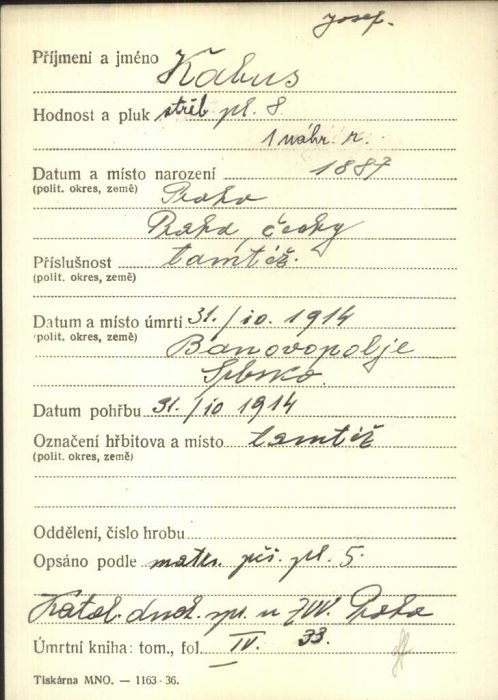 Josef.
Příjmení a jméno Kabus
Hodnost a pluk střelb pl. 8.
1 náhr. r.
Datum a místo narození 1887
(polit. okres, země)
Praha
Praha, čechy
Příslušnost tamtéž.
(polit. okres, země)
Datum a místo úmrtí 31./10. 1914
(polit. okres, země)
Banovopolje
Srbsko.
Datum pohřbu 31./10 1914
Označení hřbitova a místo tamtéž
(polit. okres, země)
Oddělení, číslo hrobu
Opsáno podle matr. pěš. pl. 5.
Katol. duch. spr. u ZVV. Praha
Úmrtní kniha: tom., fol. IV. 33.
Tiskárna MNO. — 1163-36.